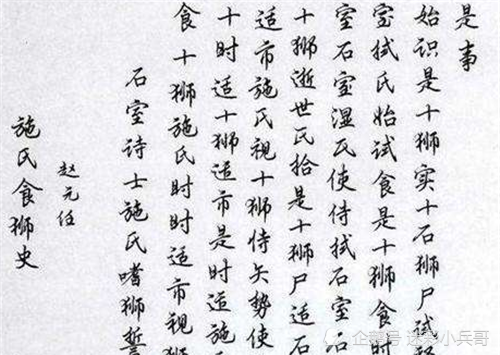 施氏食狮史
赵元任
石室诗士施氏嗜狮誓
食十狮施氏时时适市视狮
十时适十狮适市是时适施氏
适市施氏视十狮恃矢势使
十狮逝世氏拾是十狮尸适石
室石室湿氏使侍拭石室石
室拭氏始试食是十狮食时
始识是十狮实十石狮尸试释
是事
企鹅号 迷彩小兵哥